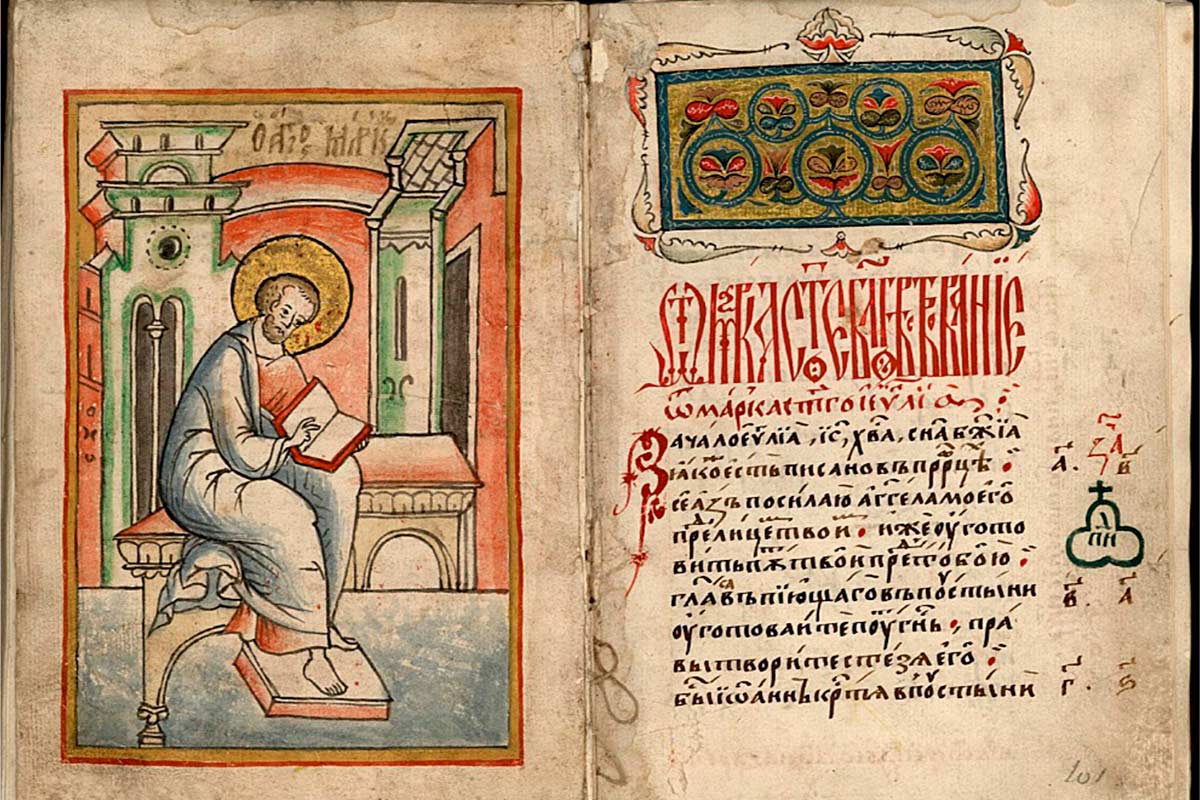 ОАГІОС МАРК
Ѿ МАРКА СТ҃ОЕ БЛГ҃ВѢСТВОВАНІЕ
ѿ марка ст҃го еѵ҃лїа
Зачало еѵ҃лїа, іс҃, хв҃а, сн҃а бж҃їа
ꙗко есть писано въ пррⷪ҇цѣ .
се азъ посилаю аггела моего
преⷣ лице твои . иже оугото
вить пѫть твои преⷣ тобою .
глаⷭ въпїющаго въ постыни
оуготоваите поуⷮ г҃нь , пра
вы творите стезя его .
быⷭ іѡаннь крⷭ҇тя в поⷭ҇тыни
з҃а
а҃. в҃
в҃. а҃
г҃. ѕ҃
101